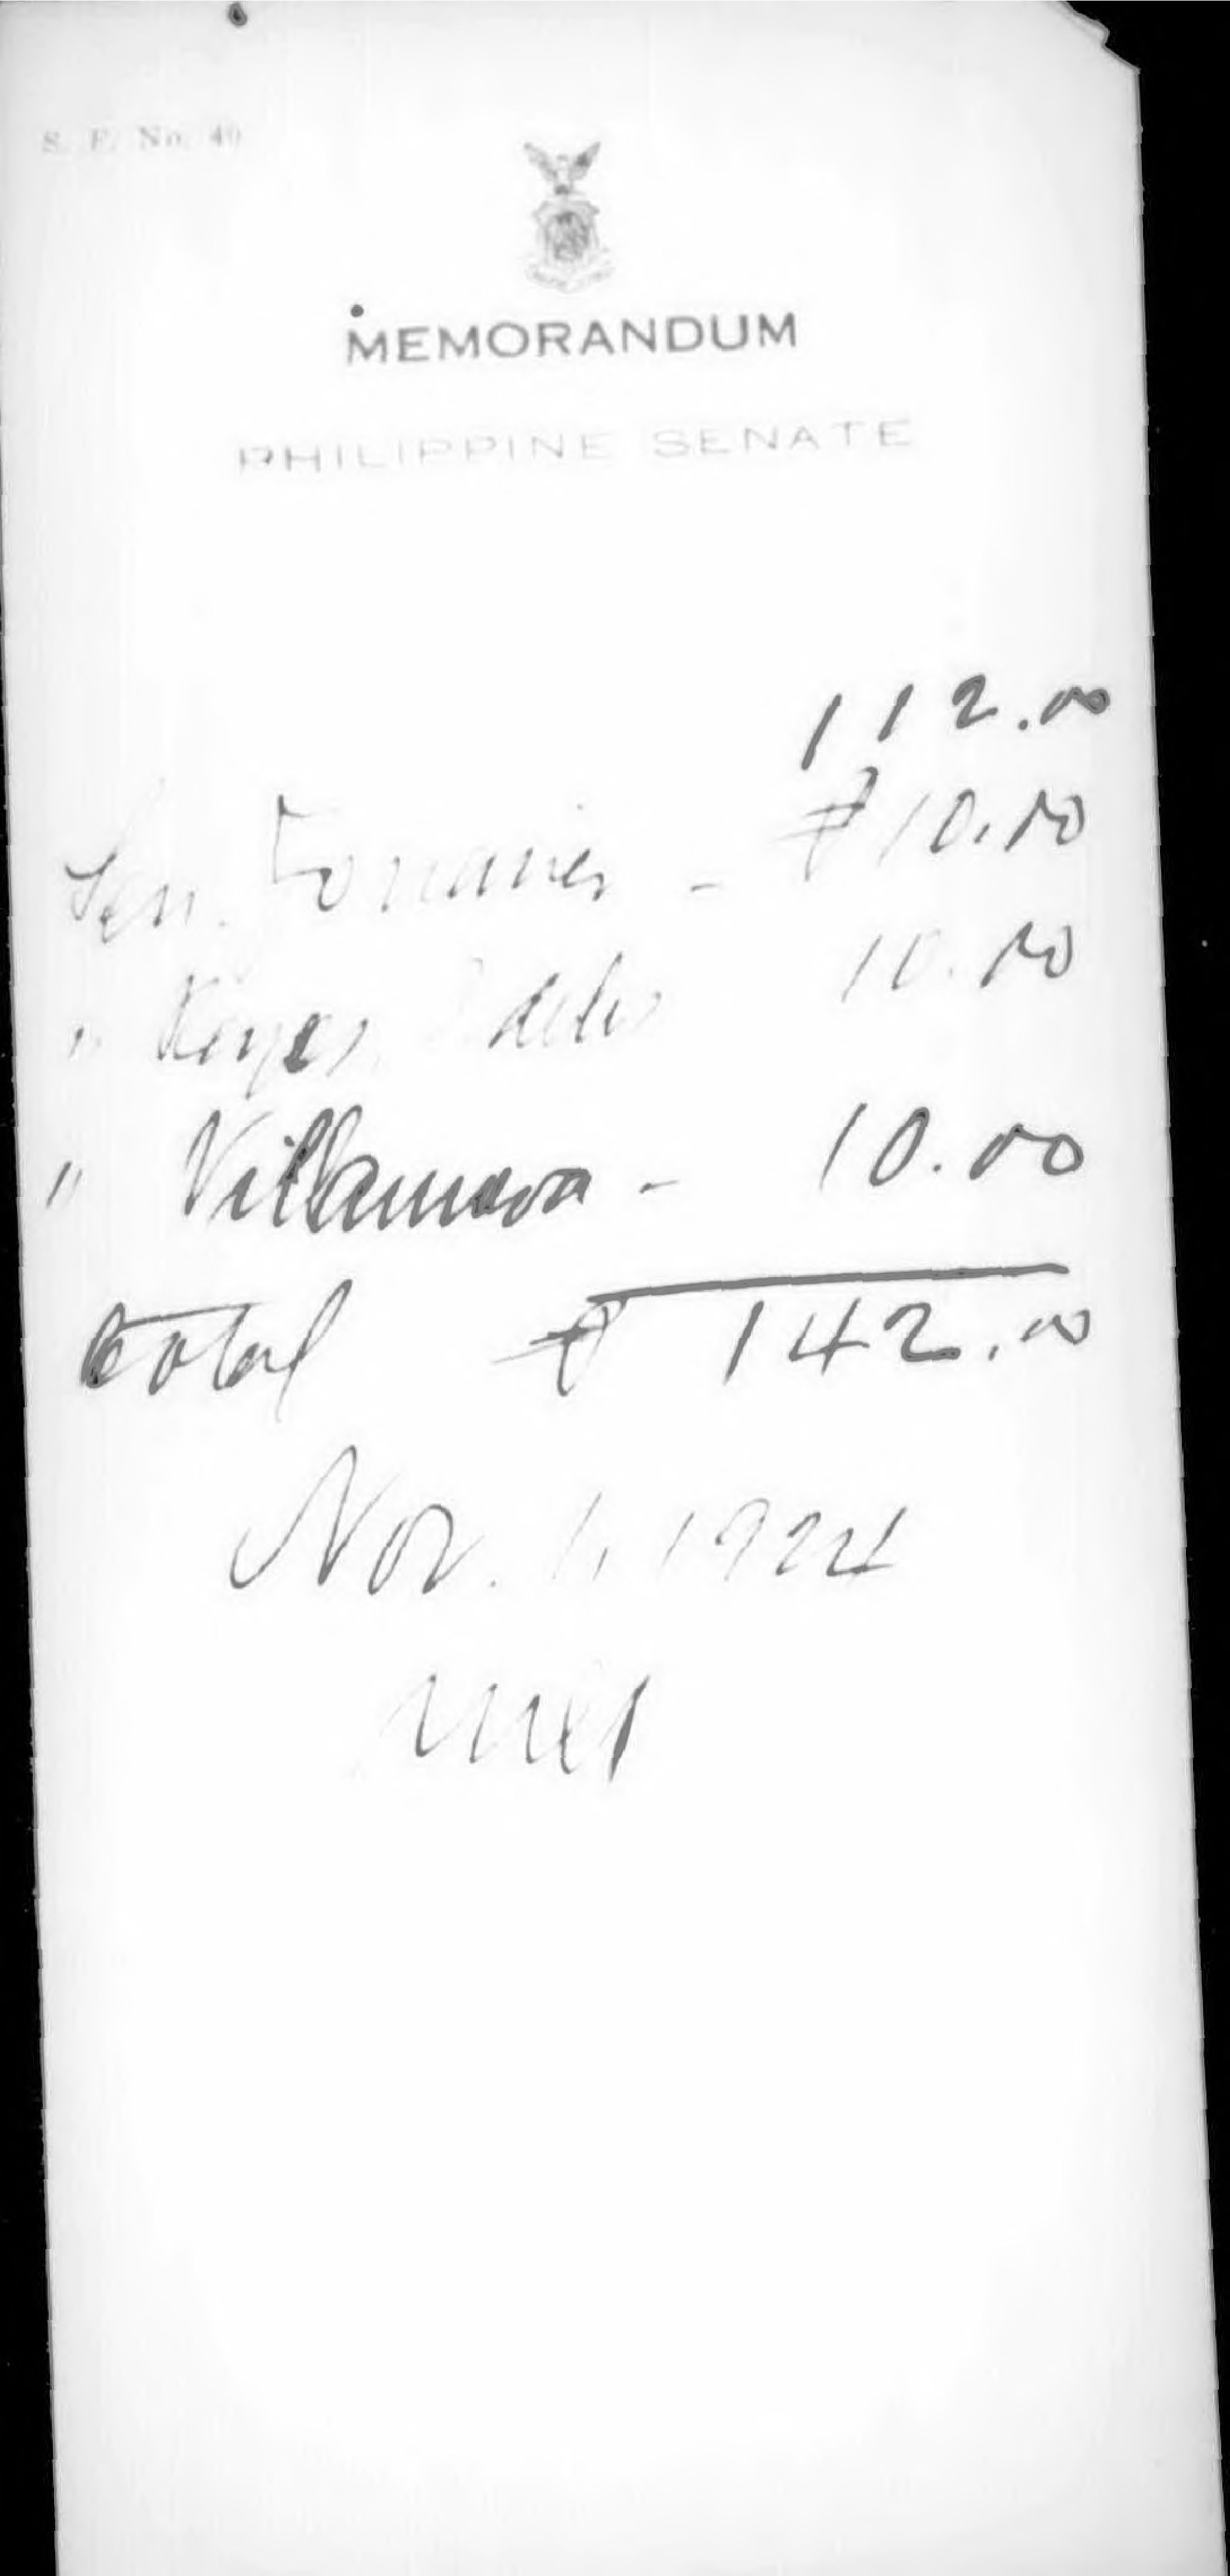 S. F. No. 40
MEMORANDUM
PHILIPPINE SENATE
112.00
Sen. ₱10.00
" Reyes, 10.00
" Villanueva - 10.00
total ₱ 142.00
Nov. 1, 1924